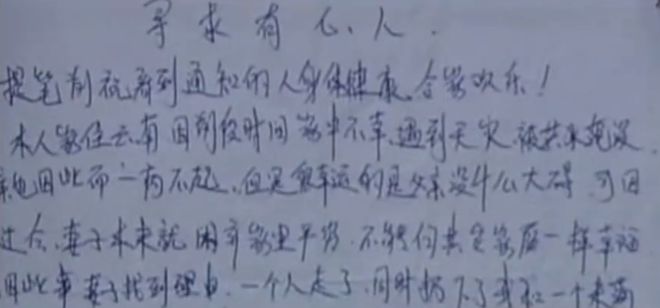 寻求有心人.
提笔前祝看到通知的人身体健康、合家欢乐!
本人家住云南因前段时间家中不幸,遇到天灾,被洪水淹没
因此而一病不起,但是幸运的是父亲没什么大碍 可因
过今,妻子本来就因穷家里平穷,不能向其它家庭一样幸福
因此事妻子找到理由,一个人走了,同时扔下了我和一个